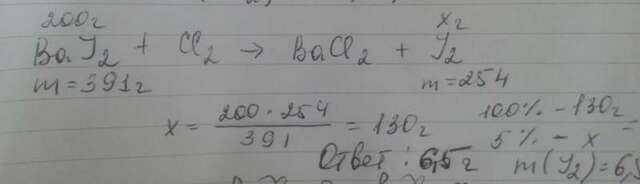 200г xг
BaJ2 + Cl2 → BaCl2 + J2
m=391г m=254
x = 200·254 / 391 = 130г 100% - 130г =
5% - x
Ответ: 6,5г m(J2)=6,5